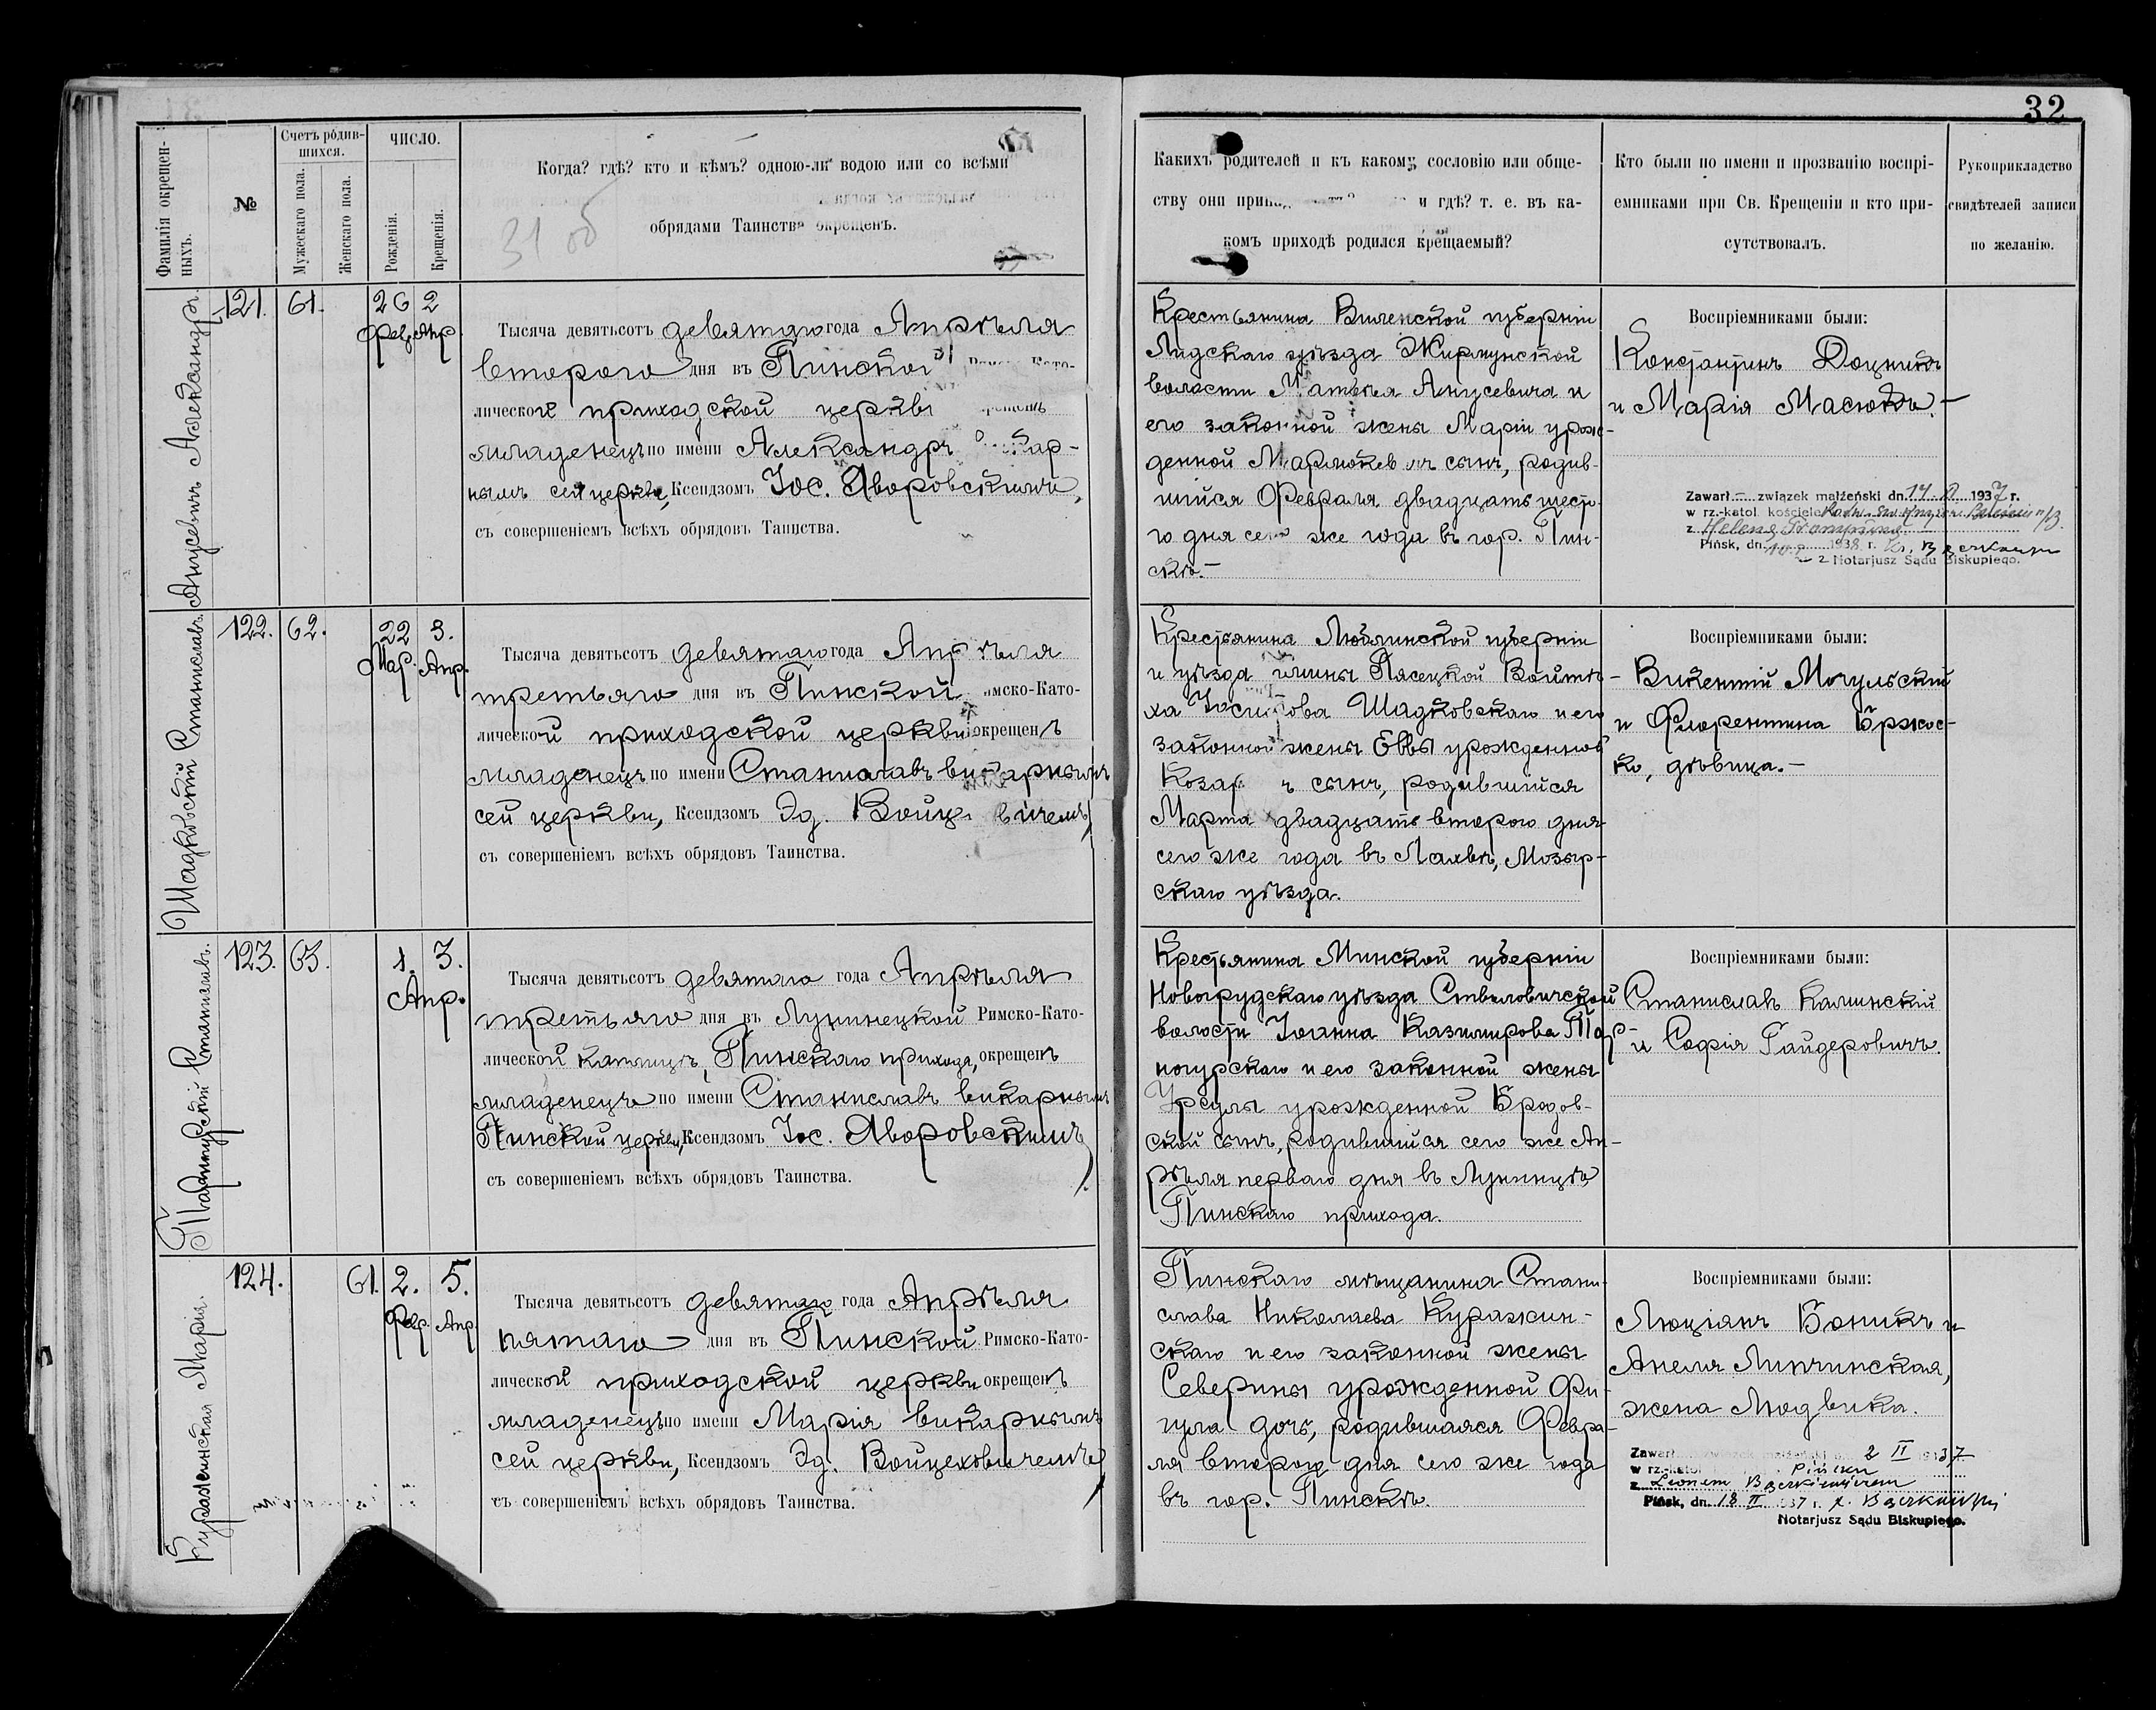 32
Фамилія окрещен-
ныхъ.
№
Счетъ родив-
шихся.
Мужескаго пола.
Женскаго пола.
ЧИСЛО.
Рожденія.
Крещенія.
Когда? гдѣ? кто и кѣмъ? одною-ли водою или со всѣми
обрядами Таинства окрещенъ.
31 об
Какихъ родителей и къ какому сословію или обще-
ству они и гдѣ? т. е. въ ка-
комъ приходѣ родился крещаемый?
Кто были по имени и прозванію воспрі-
емниками при Св. Крещеніи и кто при-
сутствовалъ.
Рукоприкладство
свидѣтелей записи
по желанію.
Анусевичъ Александръ.
121. 61. 26 2
Фев. Апр.
Тысяча девятьсотъ девятаго года Апрѣля
второго дня въ Пинской
лической приходской церкви
младенецъ по имени Александръ
нымъ сей церкви, Ксендзомъ Іос. Яворовскимъ,
съ совершеніемъ всѣхъ обрядовъ Таинства.
Крестьянина Виленской губерніи
Лидскаго уѣзда Жирмунской
волости Матвѣя Анусевича и
его законной жены Маріи урож-
денной сынъ, родив-
шійся Февраля двадцать шесто-
го дня сего же года въ гор. Пин-
скѣ.-
Воспріемниками были:
Константинъ Доцникъ
и Марія Масюкъ.-
Zawarł związek małżeński dn. 1937 r.
w rz.-katol kościele
z Heleną
Pińsk, dn. 1938. r.
Notarjusz Sądu Biskupiego.
Шадковскій Станиславъ.
122. 62. 22 3.
Мар. Апр.
Тысяча девятьсотъ девятаго года Апрѣля
третьяго дня въ Пинской имско-Като-
лической приходской церкви окрещенъ
младенецъ по имени Станиславъ викарнымъ
сей церкви, Ксендзомъ Эд.
съ совершеніемъ всѣхъ обрядовъ Таинства.
Крестьянина Люблинской губерніи
и уѣзда гмины Пясецкой Войтѣ-
ха Іосифова Шадковскаго и его
законной жены Еввы урожденной
сынъ, родившійся
Марта двадцать второго дня
сего же года въ Мозыр-
скаго уѣзда.
Воспріемниками были:
Викентій Могульскій
и Флорентина Бржос-
ко, дѣвица.-
Тарногурскій Станиславъ.
123. 63. 1. 3.
Апр.
Тысяча девятьсотъ девятаго года Апрѣля
третьяго дня въ Лунинецкой Римско-Като-
лической каплицѣ, Пинскаго прихода, окрещенъ
младенецъ по имени Станиславъ викарнымъ
Пинской церкви, Ксендзомъ Іос. Яворовскимъ,
съ совершеніемъ всѣхъ обрядовъ Таинства.
Крестьянина Минской губерніи
Новогрудскаго уѣзда Столовичской
волости Іоанна Казимирова Тар-
ногурскаго и его законной жены
Урсулы урожденной Бродов-
ской сынъ, родившійся сего же Ап-
рѣля перваго дня въ Лунинцѣ
Пинскаго прихода.
Воспріемниками были:
Станиславъ Калинскій
и Софія Гайдеровичъ.
Куражинская Марія.
124. 61. 2. 5.
Фев. Апр.
Тысяча девятьсотъ девятаго года Апрѣля
пятаго дня въ Пинской Римско-Като-
лической приходской церкви окрещенъ
младенецъ по имени Марія викарнымъ
сей церкви, Ксендзомъ Эд. Войцеховичемъ,
съ совершеніемъ всѣхъ обрядовъ Таинства.
Пинскаго мѣщанина Стани-
слава Николаева Куражин-
скаго и его законной жены
Северины урожденной Фи-
гула дочь, родившаяся Февра-
ля второго дня сего же года
въ гор. Пинскѣ.
Воспріемниками были:
Люціанъ Боникъ и
Анеля Липчинская,
жена Людвика.
Zawarł 2 II 1937
w rz.-katol Pińsku
z Leonem
Pińsk, dn. 18 II 1937 r.
Notarjusz Sądu Biskupiego.